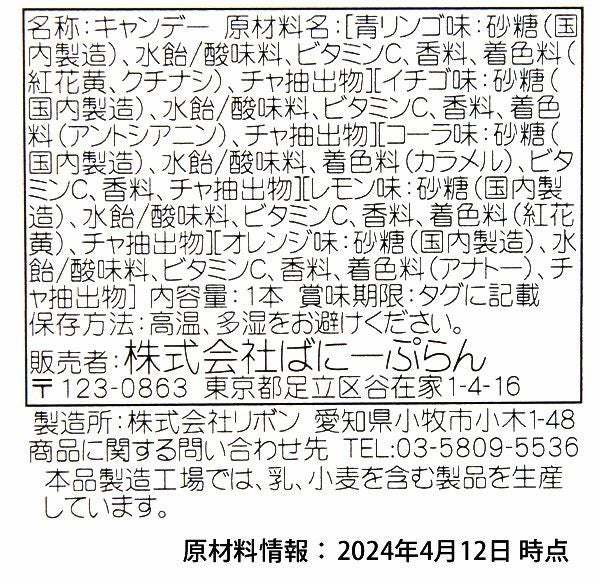 名称:キャンデー 原材料名:[青リンゴ味:砂糖(国
内製造)、水飴/酸味料、ビタミンC、香料、着色料(
紅花黄、クチナシ)、チャ抽出物][イチゴ味:砂糖(
国内製造)、水飴/酸味料、ビタミンC、香料、着色
料(アントシアニン)、チャ抽出物][コーラ味:砂糖(
国内製造)、水飴/酸味料、着色料(カラメル)、ビタ
ミンC、香料、チャ抽出物][レモン味:砂糖(国内製
造)、水飴/酸味料、ビタミンC、香料、着色料(紅花
黄)、チャ抽出物][オレンジ味:砂糖(国内製造)、水
飴/酸味料、ビタミンC、香料、着色料(アナトー)、チ
ャ抽出物] 内容量:1本 賞味期限:タグに記載
保存方法:高温、多湿をお避けください。
販売者:株式会社ばにーぷらん
〒123-0863 東京都足立区谷在家1-4-16
製造所:株式会社リボン 愛知県小牧市小木1-48
商品に関する問い合わせ先 TEL:03-5809-5536
本品製造工場では、乳、小麦を含む製品を生産
しています。
原材料情報： 2024年4月12日 時点